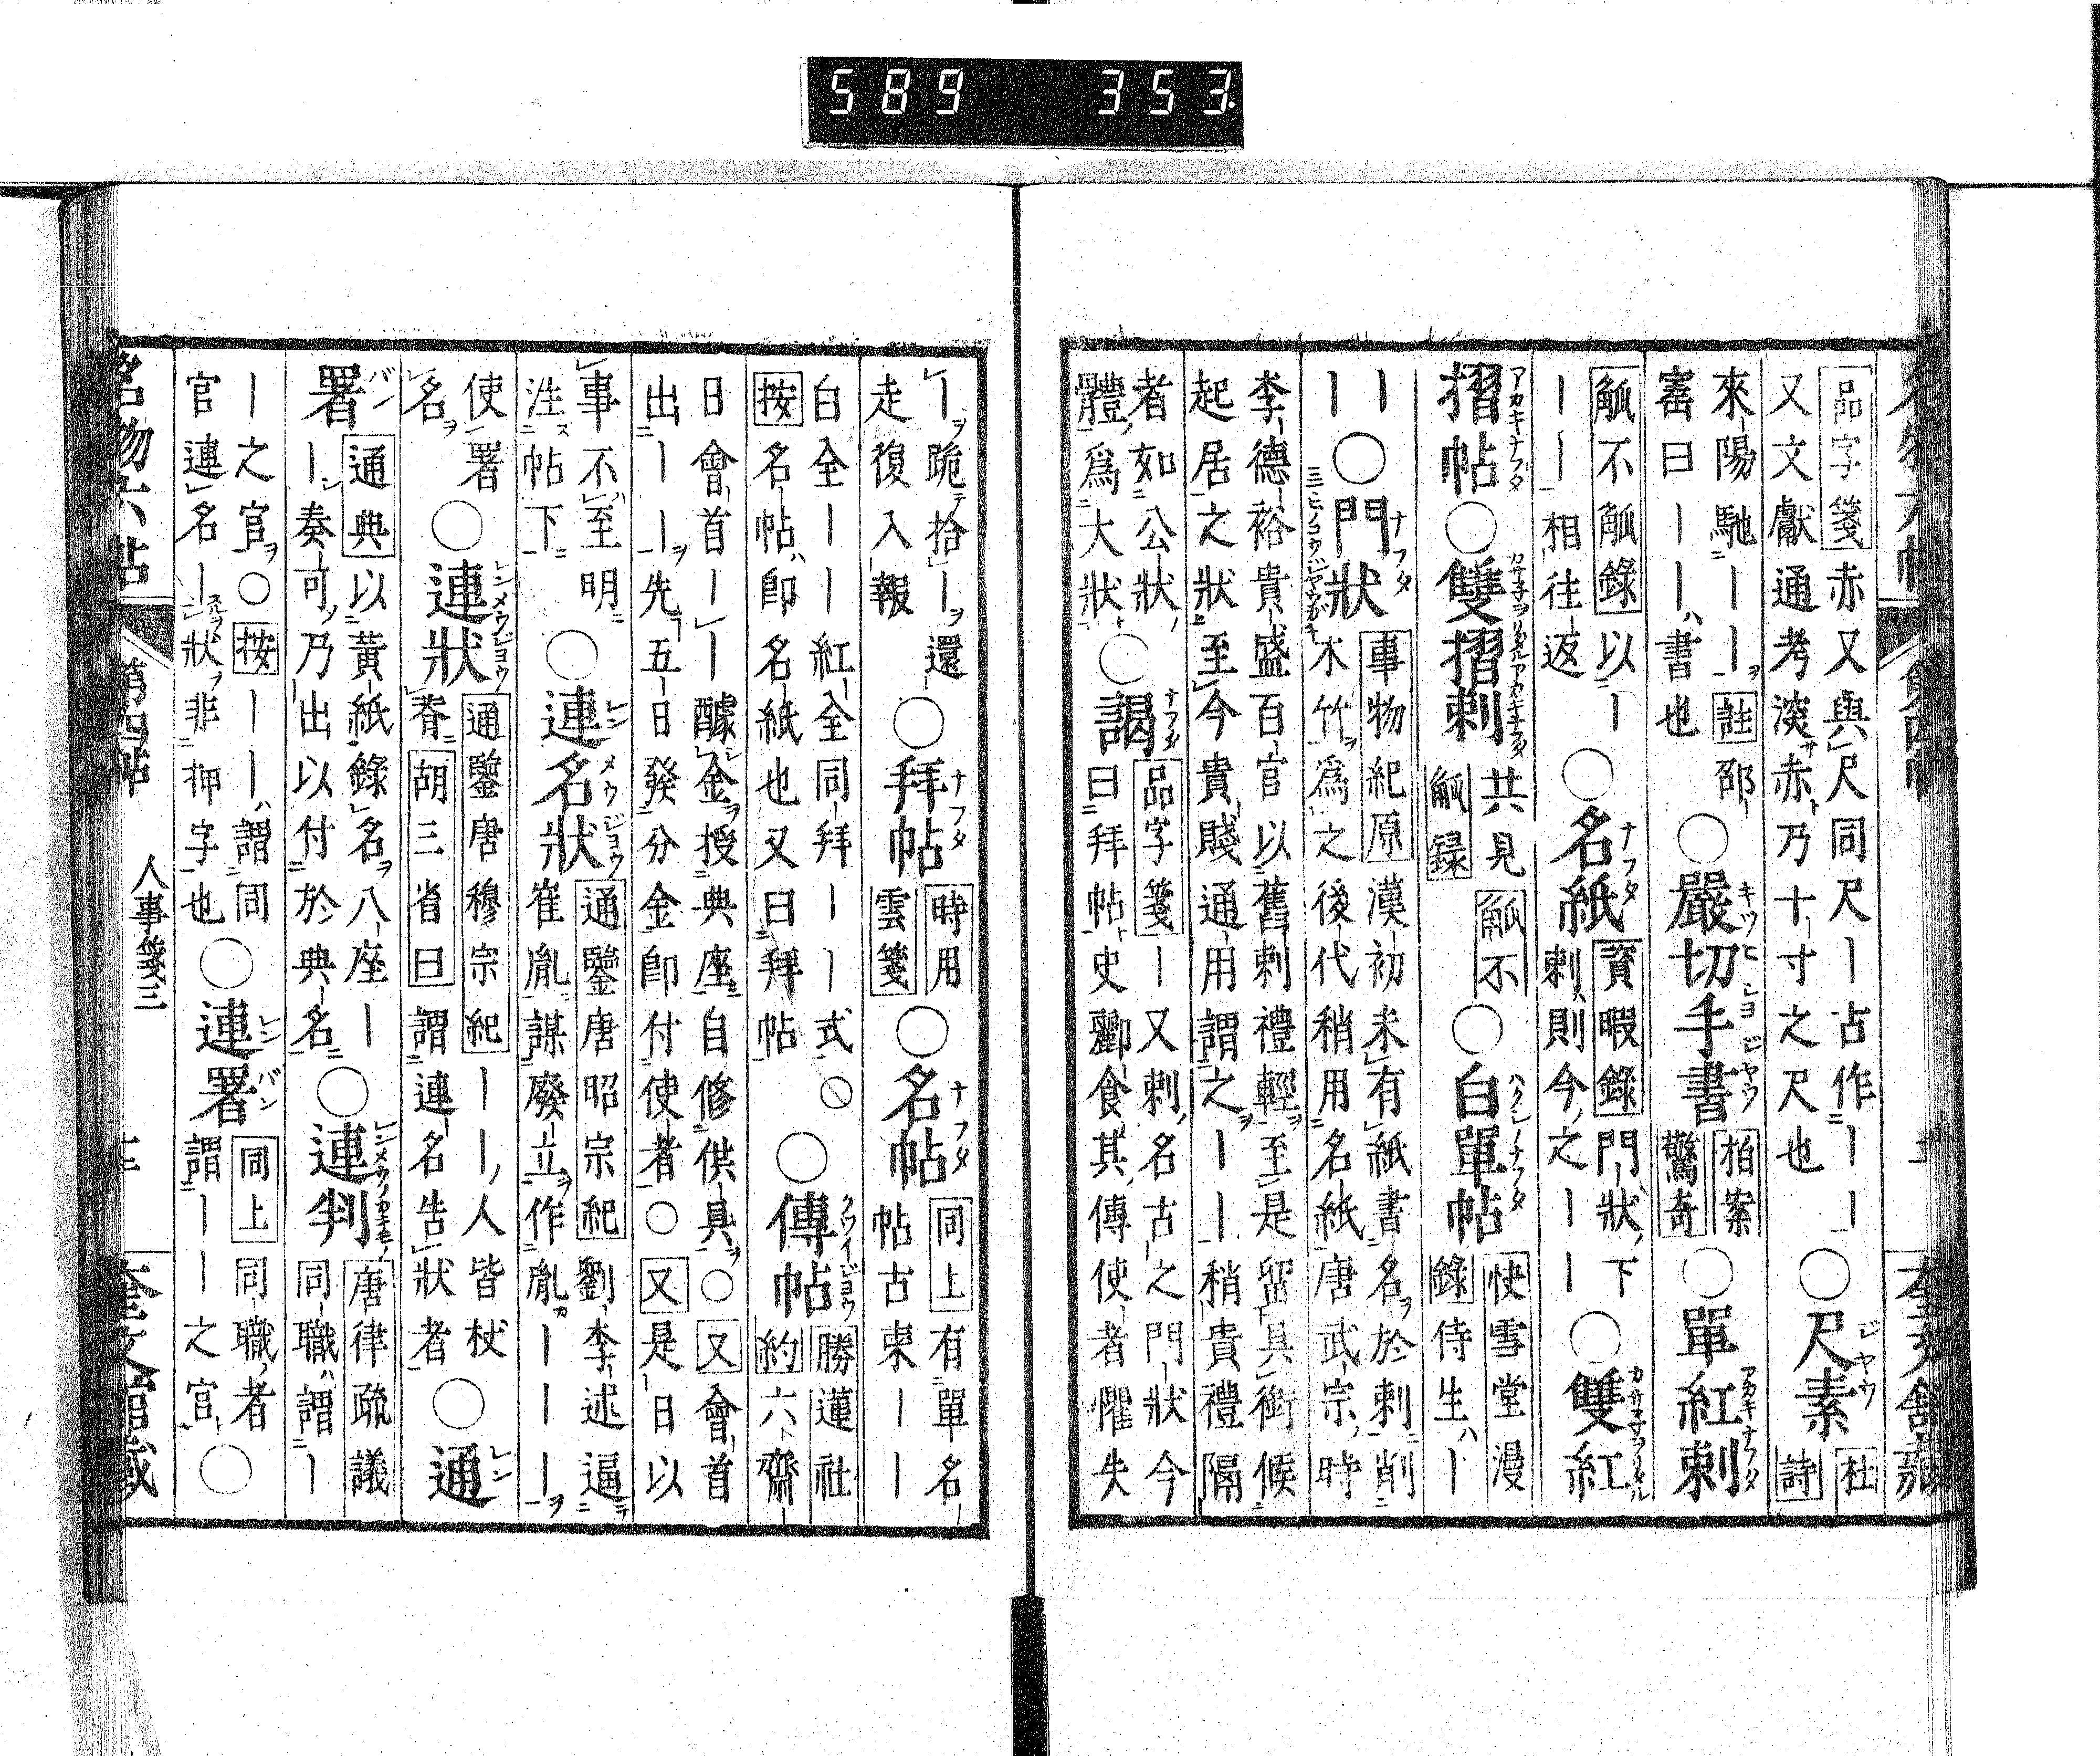 589 353.
品字箋赤又與尺同尺丨占作丨丨
又文獻通考滾赤乃十寸之尺也
○尺素 杜詩
來陽馳丨丨註邵
寚曰丨丨書也
○嚴切手書 拍案驚奇 ○單紅刺
觚不觚錄以丨
丨丨相往返
○名紙 資暇錄門狀下
刺則今之丨丨
○雙紅
摺帖 ○雙摺刺 共見觚不觚録 ○白單帖 快雪堂漫
錄侍生丨
丨丨 ○門狀 事物紀原漢初未有紙書名於刺削
木竹爲之後代稍用名紙唐武宗時
李德裕貴盛百官以舊刺禮輕至是留具銜候
起居之狀至今貴賤通用謂之丨丨稍貴禮隔
者如公狀
體爲大狀
○謁 品字箋丨又刺名古之門狀今
曰拜帖史酈食其傳使者懼失
丨跪拾丨還
走復入報
○拜帖 時用雲箋 ○名帖 同上有單名丨
帖古柬丨丨
白全丨丨紅全同拜丨丨式
按名帖卽名紙也又曰拜帖
○傳帖 勝蓮社
約六齋
日會首丨丨醵金授典座自修供具○又會首
出丨丨先五日發分金卽付使者○又是日以
事不至明
注帖下
○連名狀 通鑒唐昭宗紀劉李述逼
崔胤謀廢立作胤丨丨丨
使署
名
○連狀 通鑒唐穆宗紀丨丨人皆杖
脊胡三省曰謂連名告狀者
○通
署 通典以黃紙錄名八座丨
丨奏可乃出以付於典名
○連判 唐律疏議
同職謂丨
丨之官○按丨丨謂同
官連名丨狀非押字也
○連署 同上同職者
謂丨丨之官
○
名物六帖 第四帖 人事箋三 奎文館藏